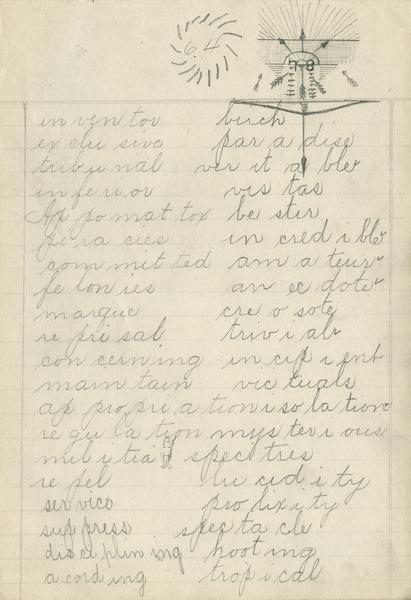 64
78
in ven tor birch
ex clu sive par a dise
tribu nal ver it a ble
in fe ri or vis tas
Ap po mat tox be stir
pi ra cies in cred i ble
com mit ted am a teur
fe lon ies an ec dote
marque cre o sote
re pri sal triv i al
con cern ing in cip i ent
main tain vic tuals
ap pro pri a tion i so la tion
re gu la tion mys ter i ous
mil i tia spec tres
re pel lu cid i ty
service pro lix i ty
sup press spec ta cle
dis ci plin ing hoot ing
a cord ing trop i cal